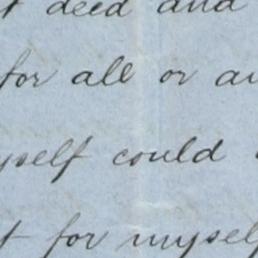 t deed and
for all or an
yself could
t for mysel